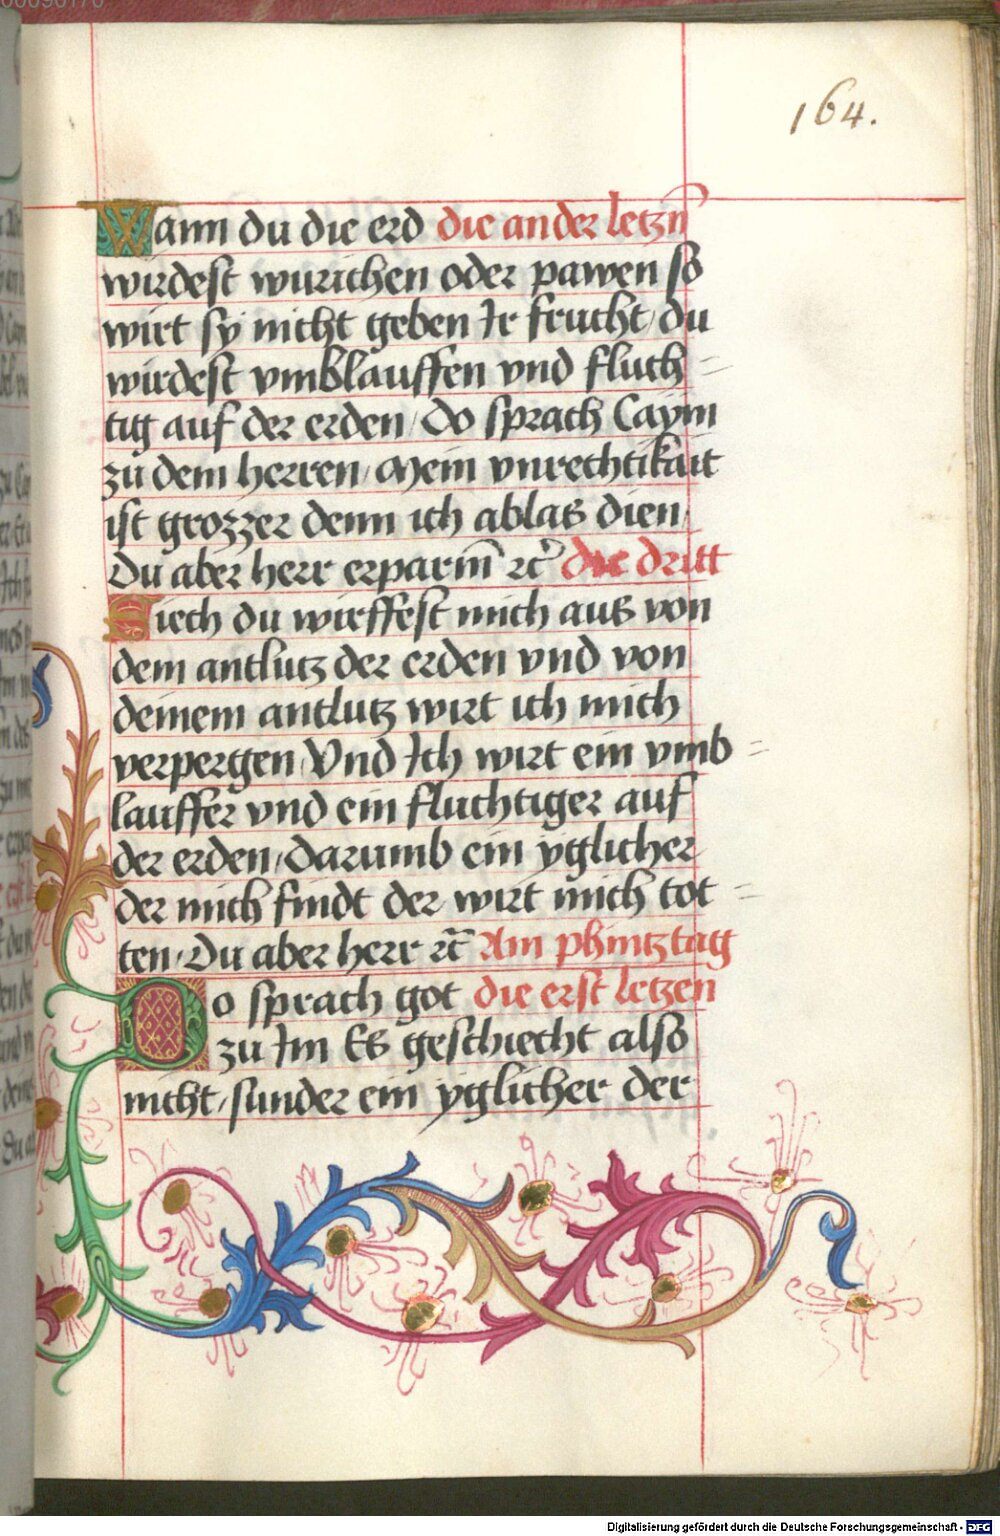 164.
Wann du die erd die ander letzn̄
wirdest wurichen oder pawen so
wirt sy nicht geben Ir frucht / du
wirdest vmblauffen vnd fluch=
tig auf der erden / Do sprach Caym
zu dem herren / Mein vnrechtikait
ist grozzer denn ich ablas dien /
Du aber herr erparm̄ ꝛc̄ die dritt
Siech du wirffest mich aus von
dem antlutz der erden vnd von
deinem antlutz wirt ich mich
verpergen / Vnd Ich wirt ein vmb=
lauffer vnd ein fluchtiger auf
der erden / darumb ein yglicher
der mich findt der wirt mich tot=
ten / Du aber herr ꝛc̄ Am phintztag
Do sprach got die erst letzen
zu Im Es geschiecht also
nicht / sunder ein yglicher der
Digitalisierung gefördert durch die Deutsche Forschungsgemeinschaft - DFG